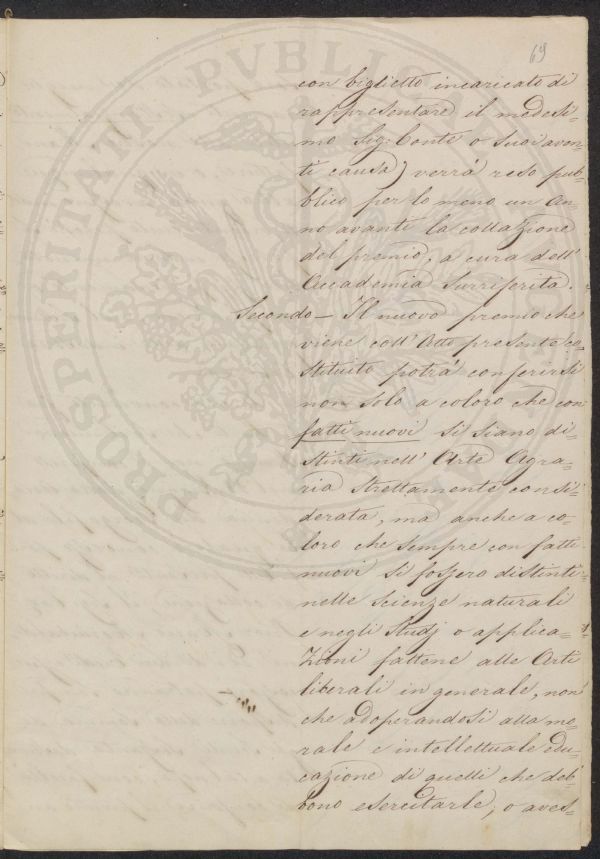 69
con biglietto incaricato di
rappresentare il medesi=
mo Sig: Conte o suoi aven=
ti causa) verrà reso pub=
blico per lo meno un an=
no avanti la collazione
del premio, a cura dell'
Accademia surriferita.
Secondo — Il nuovo premio che
viene coll' Atto presente co=
stituito potrà conferirsi
non solo a coloro che con
fatti nuovi si siano di=
stinti nell' Arte Agra=
ria strettamente consi=
derata, ma anche a co=
loro che sempre con fatti
nuovi si fossero distinti
nelle scienze naturali
e negli studj o applica=
zioni fattene alle Arti
liberali in generale, non
che adoperandosi alla mo=
rale e intellettuale edu=
cazione di quelli che deb=
bono esercitarle; o aves=
PROSPERITATI PVBLICAE